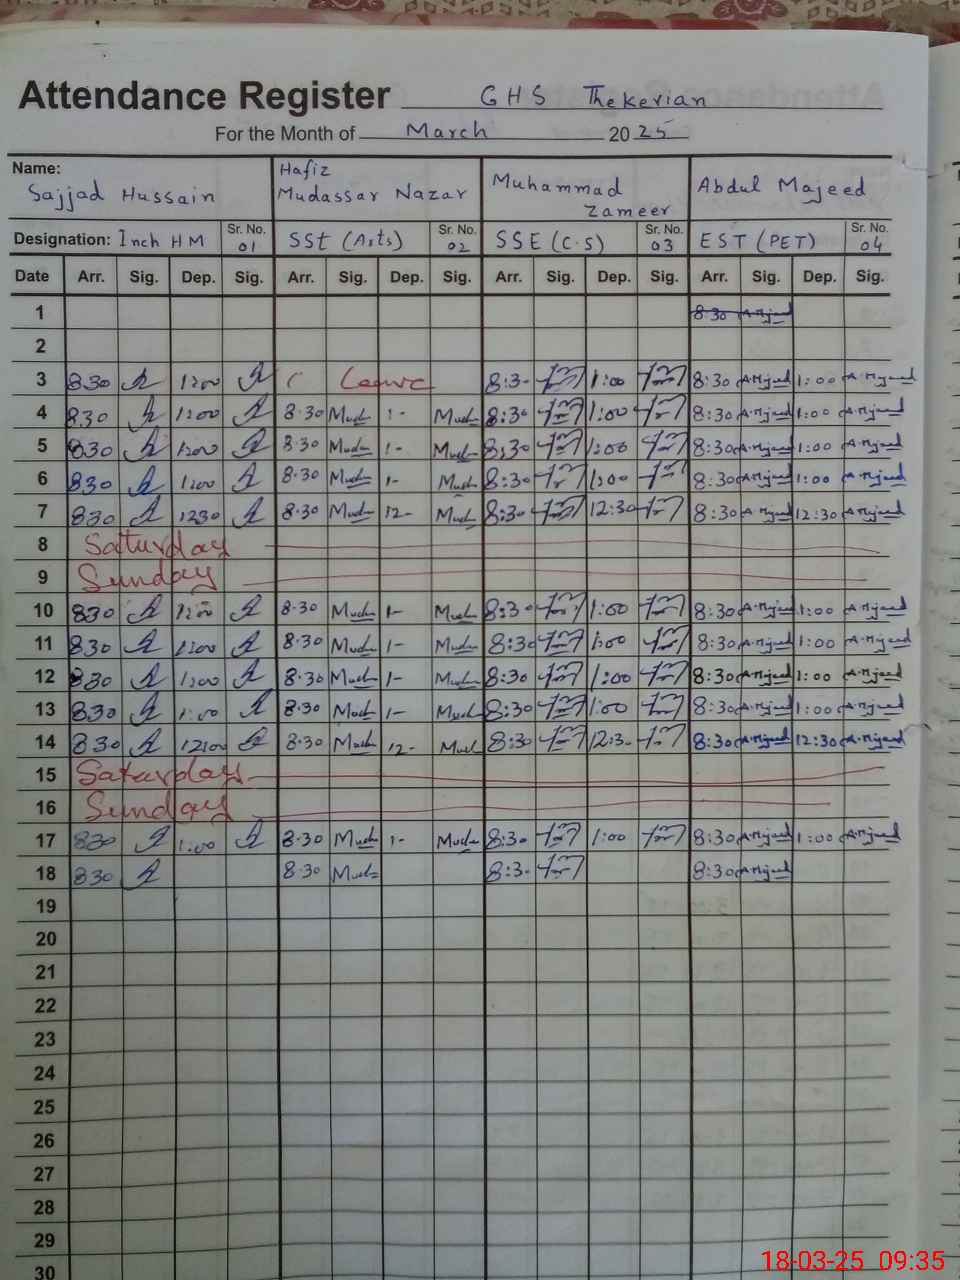 Attendance Register GHS Thekerian
For the Month of March 2025
Name: Sajjad Hussain Hafiz Mudassar Nazar Muhammad Zameer Abdul Majeed
Designation: Inch HM Sr. No. 01 SST (Arts) Sr. No. 02 SSE (C.S) Sr. No. 03 EST (PET) Sr. No. 04
Date Arr. Sig. Dep. Sig. Arr. Sig. Dep. Sig. Arr. Sig. Dep. Sig. Arr. Sig. Dep. Sig.
1 8:30 A.Mjeed
2
3 830 1:00 Leave 8:3- 1:00 8:30 A.Mjeed 1:00 A.Mjeed
4 830 1:00 8.30 Mud 1- Mud 8:30 1:00 8:30 A.Mjeed 1:00 A.Mjeed
5 830 1:00 8.30 Mud 1- Mud 8:30 1:00 8:30 A.Mjeed 1:00 A.Mjeed
6 830 1:00 8.30 Mud 1- Mud 8:30 1:00 8:30 A.Mjeed 1:00 A.Mjeed
7 830 1230 8.30 Mud 12- Mud 8:30 12:30 8:30 A.Mjeed 12:30 A.Mjeed
8 Satturday
9 Sunday
10 830 1:00 8.30 Mud 1- Mud 8:30 1:00 8:30 A.Mjeed 1:00 A.Mjeed
11 830 1:00 8.30 Mud 1- Mud 8:30 1:00 8:30 A.Mjeed 1:00 A.Mjeed
12 830 1:00 8.30 Mud 1- Mud 8:30 1:00 8:30 A.Mjeed 1:00 A.Mjeed
13 830 1:00 8.30 Mud 1- Mud 8:30 1:00 8:30 A.Mjeed 1:00 A.Mjeed
14 830 8.30 Mud 12- Mud 8:30 12:3- 8:30 A.Mjeed 12:30 A.Mjeed
15 Saturday
16 Sunday
17 830 1:00 8.30 Mud 1- Mud 8:30 1:00 8:30 A.Mjeed 1:00 A.Mjeed
18 830 8.30 Mud 8:3- 8:30 A.Mjeed
19
20
21
22
23
24
25
26
27
28
29
30
18-03-25 09:35